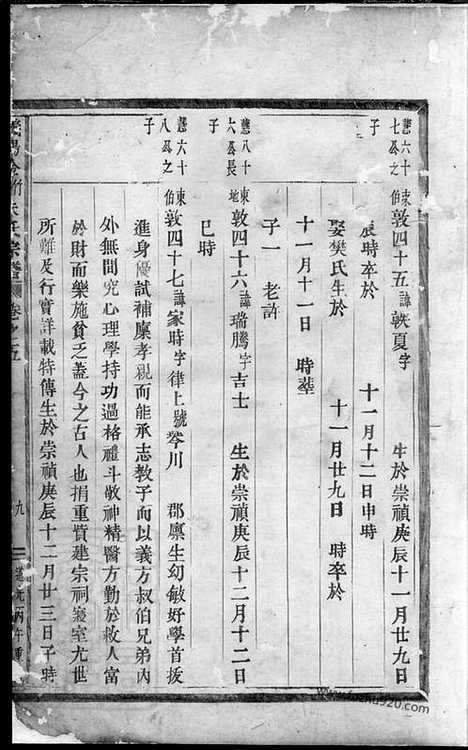 憲六十七公之子
東伯敦四十五諱軼夏字　生於崇禎庚辰十一月廿九日
辰時卒於　十一月十二日申時
娶樊氏生於　十一月廿九日　時卒於
十一月十一日　時塟
子一　老許
憲八十六公長子
東地敦四十六諱瑞騰字吉士　生於崇禎庚辰十二月十二日
巳時
憲六十八公之子
東伯敦四十七諱家時字律上號琴川　郡廩生幼敏好學首拔
進身優試補廩孝親而能承志教子而以義方叔伯兄弟內
外無間究心理學持功過格禮斗敬神精醫方勤於救人富
於財而樂施貧乏蓋今之古人也捐重貲建宗祠寢室尤世
所難及行實詳載特傳生於崇禎庚辰十二月廿三日子時
氏宗譜　卷之五　九　道光丙午重